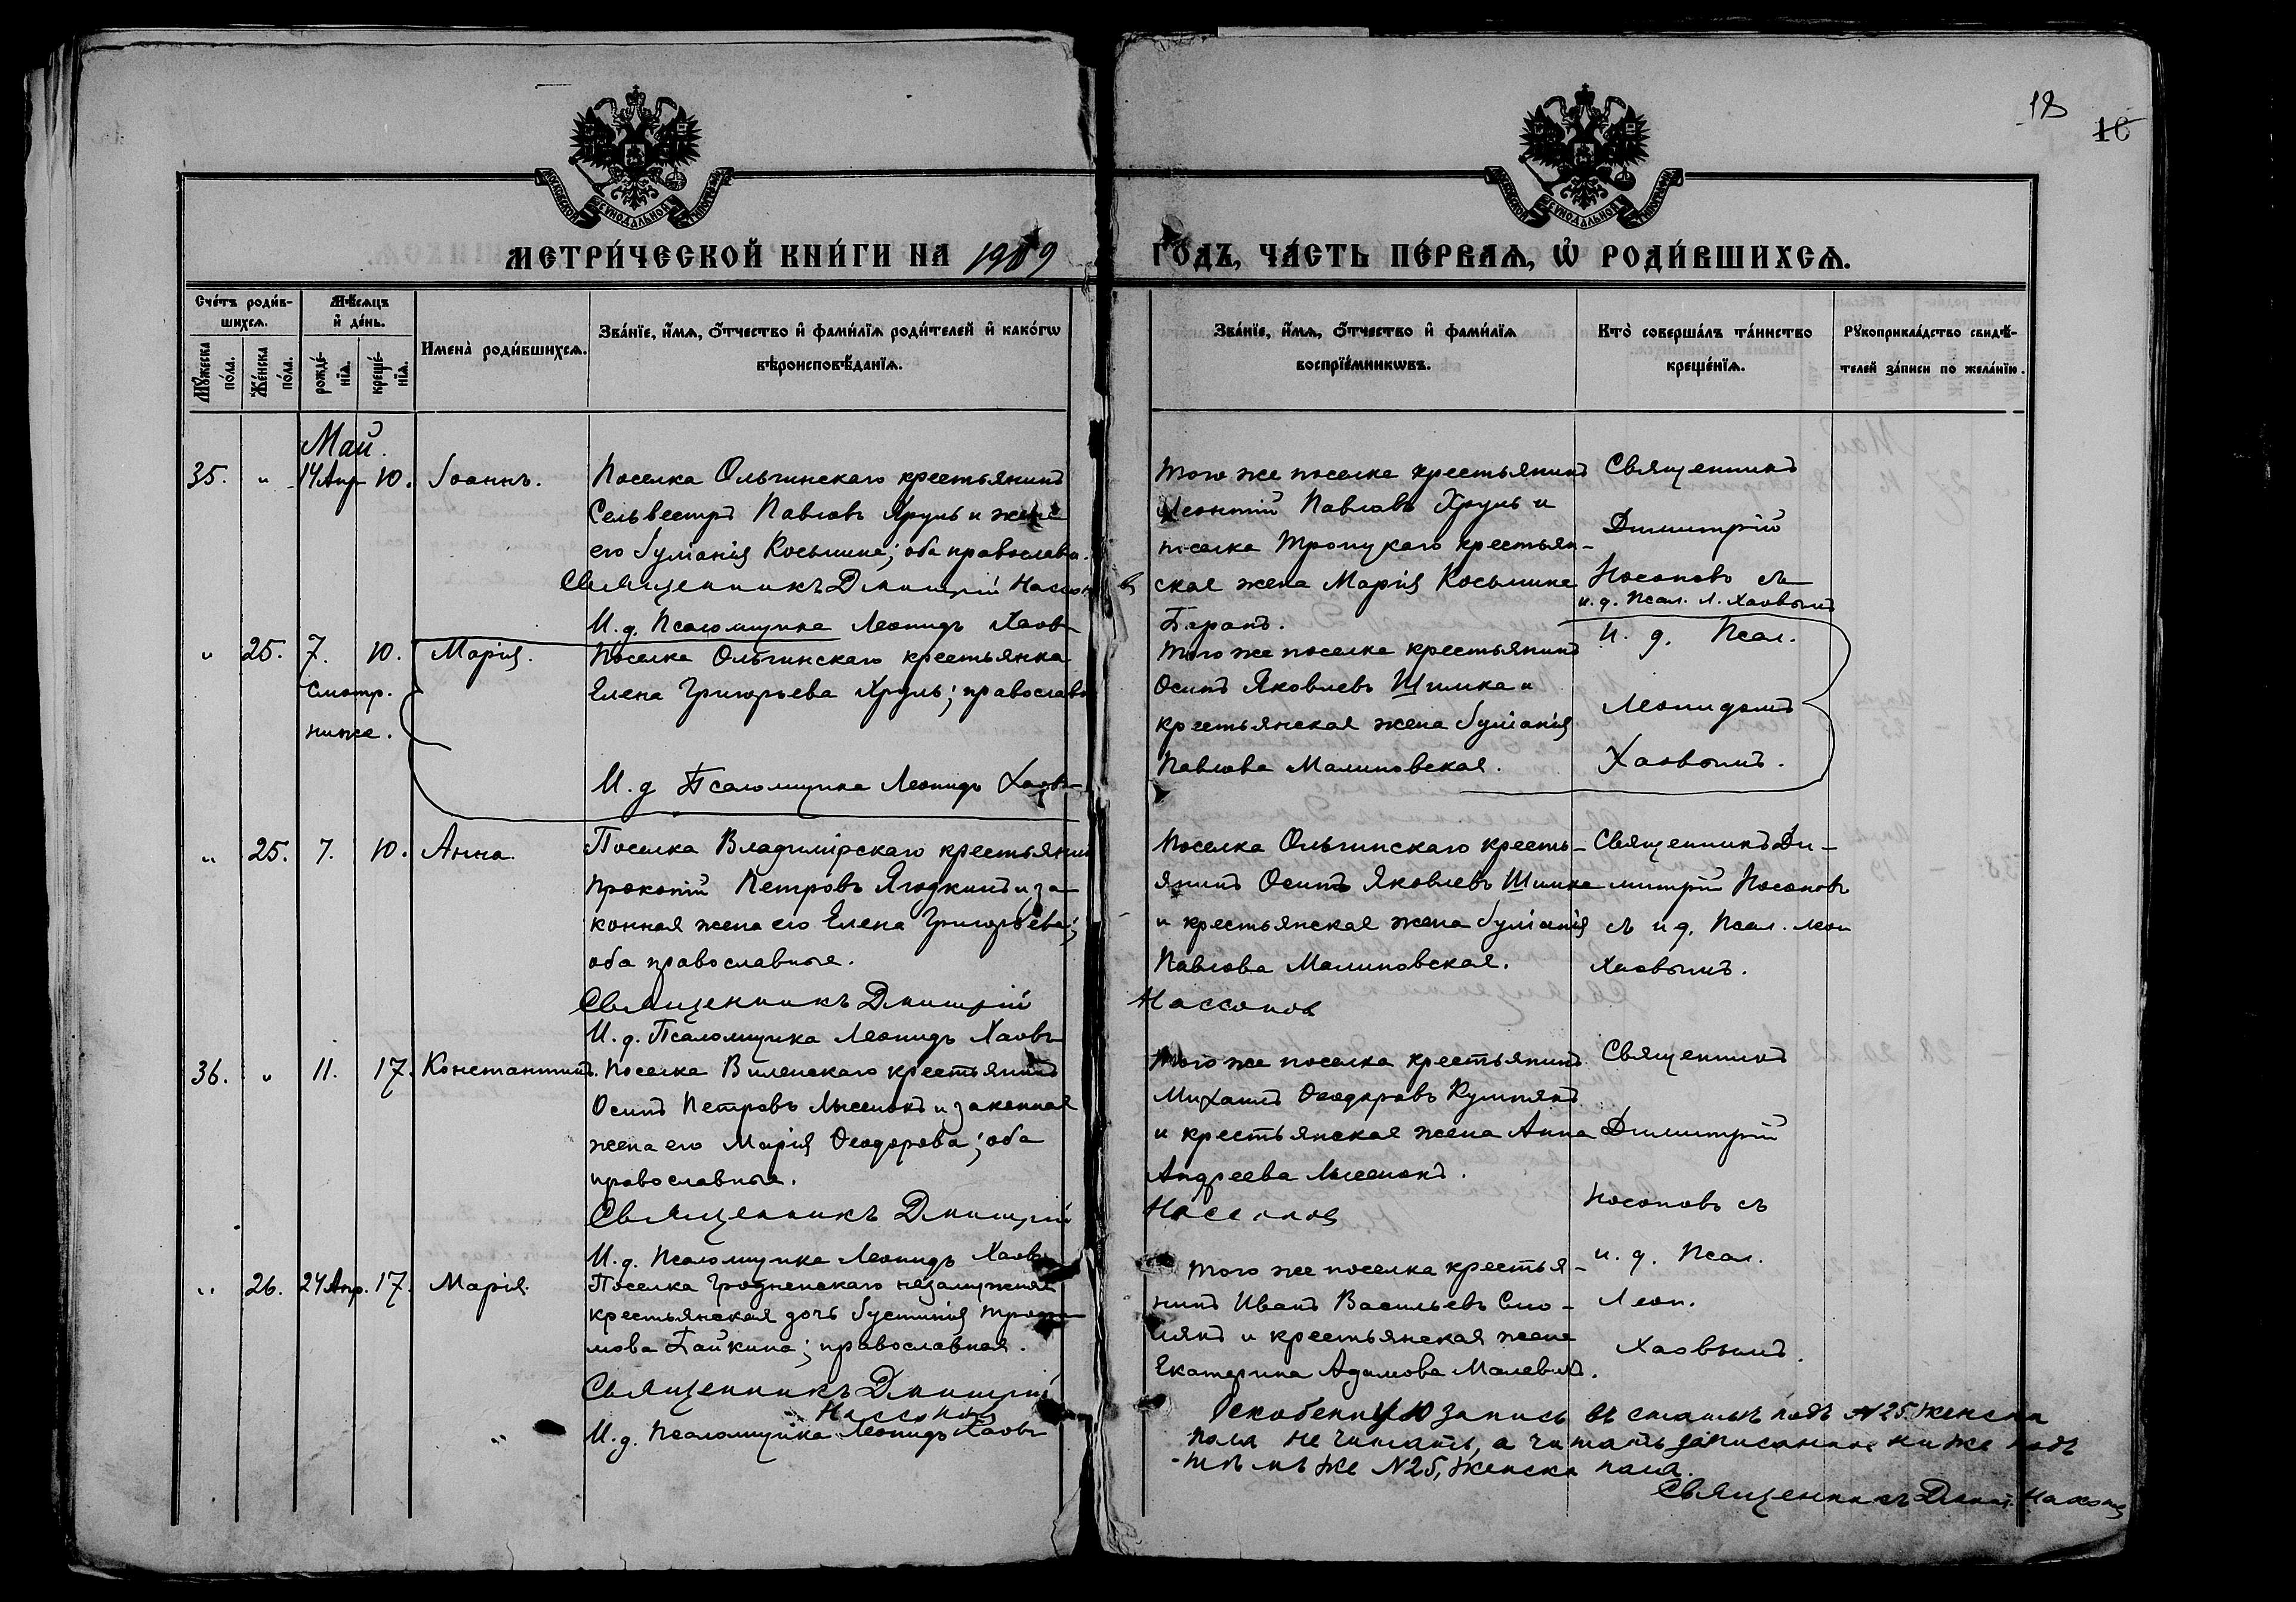 18
16
МОСКОВСКОЙ СѴНОДАЛЬНОЙ ТИПОГРАФІИ
МОСКОВСКОЙ СѴНОДАЛЬНОЙ ТИПОГРАФІИ
МЕТРИ́ЧЕСКОЙ КНИ́ГИ НА 1909
ГО́ДЪ, ЧА́СТЬ ПЕ́РВАѦ, Ѡ҆ РОДИ́ВШИХСѦ.
Сче́тъ роди́в-
шихсѧ.
Мꙋ́жеска
по́ла.
Же́нска
по́ла.
Мѣ́сѧцъ
и҆ де́нь.
рожде́-
нїѧ.
креще́-
нїѧ.
Имена̀ роди́вшихсѧ.
Зва́нїе, и҆́мѧ, ѻ҆́тчество и҆ фами́лїѧ роди́телей и҆ како́гѡ
вѣроисповѣ́данїѧ.
Зва́нїе, и҆́мѧ, ѻ҆́тчество и҆ фами́лїѧ
воспрїе́мникѡвъ.
Кто̀ соверша́лъ та́инство
креще́нїѧ.
Рꙋкоприкла́дство свидѣ́-
телей за́писи по жела́нїю.
Май.
35. " 14 Апр 10. Іоаннъ.
Поселка Ольгинскаго крестьянинъ
Сельвестръ Павловъ Хруль и жена
его Іуліанія Косьмина; оба православн.
Священникъ Дмитрій Нассоновъ
И. д. Псаломщика Леонидъ Хаовъ
Того же поселка крестьянинъ
Леонтій Павловъ Хруль и
поселка Троицкаго крестьян-
ская жена Марія Косьмина
Баранъ.
Священникъ
Димитрій
Носоновъ съ
и. д. Псал. Л. Хаовымъ
" 25. 7. 10. Марія.
Смотр.
ниже.
Поселка Ольгинскаго крестьянка
Елена Григорьева Хруль; православн
И. д Псаломщика Леонидъ Хаовъ
Того же поселка крестьянинъ
Осипъ Яковлевъ Шимка и
крестьянская жена Іуліанія
Павлова Малиновская.
И. д. Псал.
Леонидомъ
Хаовымъ.
" 25. 7. 10. Анна.
Поселка Владимірскаго крестьянинъ
Прокопій Петровъ Ягодкинъ и за-
конная жена его Елена Григорьева;
оба православные.
Священникъ Дмитрій Нассонов
И. д. Псаломщика Леонидъ Хаовъ
Поселка Ольгинскаго кресть-
янинъ Осипъ Яковлевъ Шимка
и крестьянская жена Іуліанія
Павлова Малиновская.
Священникъ Ди-
митрій Носоновъ
съ и д. Псал. Леон
Хаовымъ.
36. " 11. 17. Константинъ.
Поселка Виленскаго крестьянинъ
Осипъ Петровъ Лысенокъ и законная
жена его Марія Ѳеодорова; оба
православные.
Священникъ Дмитрій Нассонов
И. д. Псаломщика Леонидъ Хаовъ
Того же поселка крестьянинъ
Михаилъ Ѳеодоровъ
и крестьянская жена Анна
Андреева Лысенокъ.
Священникъ
Димитрій
Носоновъ съ
и. д. Псал.
Леон.
Хаовымъ.
" 26. 24 Апр. 17. Марія.
Поселка Гродненскаго незамужняя
крестьянская дочь Іустинія Трофи-
мова Байкина; православная.
Священникъ Дмитрій
Нассонов
И. д. Псаломщика Леонидъ Хаовъ
Того же поселка крестья-
нинъ Иванъ Васильевъ
и крестьянская жена
Екатерина Адамова Малевич.
Оскобенную запись въ статьѣ подъ №25 женска
пола не читать, а читать записанное ниже подъ
тѣмъ же №25, женска пола.
Священникъ Дмит. Нассонов